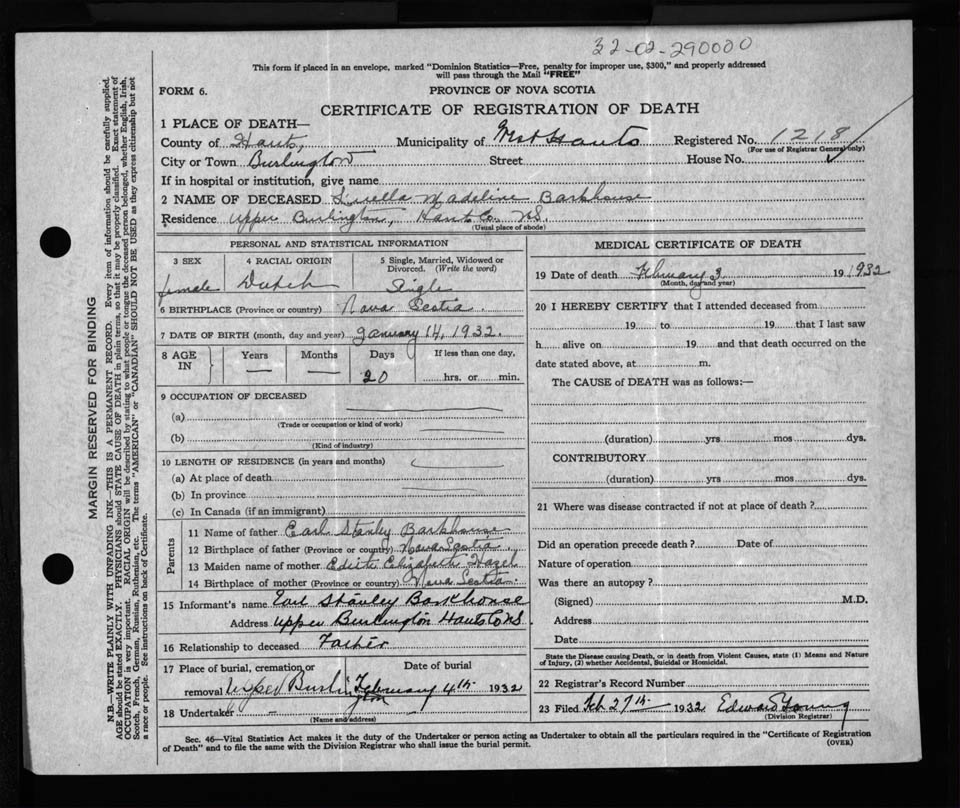 32-02-290000
This form if placed in an envelope, marked "Dominion Statistics—Free, penalty for improper use, $300," and properly addressed
will pass through the Mail "FREE"
FORM 6.
PROVINCE OF NOVA SCOTIA
CERTIFICATE OF REGISTRATION OF DEATH
1 PLACE OF DEATH—
County of Hants, Municipality of West Hants Registered No. 1218
(For use of Registrar General only)
City or Town Burlington Street House No.
If in hospital or institution, give name
2 NAME OF DECEASED Madeline Barkhouse
Residence Upper Burlington, Hants Co. N.S.
(Usual place of abode)
PERSONAL AND STATISTICAL INFORMATION
3 SEX
female
4 RACIAL ORIGIN
Dutch
5 Single, Married, Widowed or
Divorced. (Write the word)
Single
6 BIRTHPLACE (Province or country) Nova Scotia.
7 DATE OF BIRTH (month, day and year) January 14, 1932.
8 AGE
IN
Years
—
Months
—
Days
20
If less than one day,
hrs. or min.
9 OCCUPATION OF DECEASED
(a)
(Trade or occupation or kind of work)
(b)
(Kind of industry)
10 LENGTH OF RESIDENCE (in years and months)
(a) At place of death
(b) In province
(c) In Canada (if an immigrant)
Parents
11 Name of father Earl Stanley Barkhouse
12 Birthplace of father (Province or country) Nova Scotia
13 Maiden name of mother Edith Elizabeth Hazel
14 Birthplace of mother (Province or country) Nova Scotia.
15 Informant's name Earl Stanley Barkhouse
Address Upper Burlington Hants Co N.S.
16 Relationship to deceased Father
17 Place of burial, cremation or
removal Upper Burlington
Date of burial
February 4th 1932
18 Undertaker
(Name and address)
MEDICAL CERTIFICATE OF DEATH
19 Date of death February 3 19 1932
(Month, day and year)
20 I HEREBY CERTIFY that I attended deceased from
19 to 19 that I last saw
h alive on 19 and that death occurred on the
date stated above, at m.
The CAUSE of DEATH was as follows:—
(duration) yrs mos dys.
CONTRIBUTORY
(duration) yrs mos dys.
21 Where was disease contracted if not at place of death?
Did an operation precede death? Date of
Nature of operation
Was there an autopsy?
(Signed) M.D.
Address
Date
State the Disease causing Death, or in death from Violent Causes, state (1) Means and Nature
of Injury, (2) whether Accidental, Suicidal or Homicidal.
22 Registrar's Record Number
23 Filed Feb 27th 1932 Edward Young
(Division Registrar)
Sec. 46—Vital Statistics Act makes it the duty of the Undertaker or person acting as Undertaker to obtain all the particulars required in the "Certificate of Registration
of Death" and to file the same with the Division Registrar who shall issue the burial permit.
(OVER)
MARGIN RESERVED FOR BINDING
N.B.—WRITE PLAINLY WITH UNFADING INK—THIS IS A PERMANENT RECORD. Every item of information should be carefully supplied.
AGE should be stated EXACTLY. PHYSICIANS should STATE CAUSE OF DEATH in plain terms, so that it may be properly classified. Exact statement of
OCCUPATION is very important. RACIAL ORIGIN will be described by stating to what people or tongue the deceased person belonged, whether English, Irish,
Scotch, French, German, Russian, Ruthenian, etc. The terms "AMERICAN" or "CANADIAN" SHOULD NOT BE USED as they express citizenship but not
a race or people. See instructions on back of Certificate.